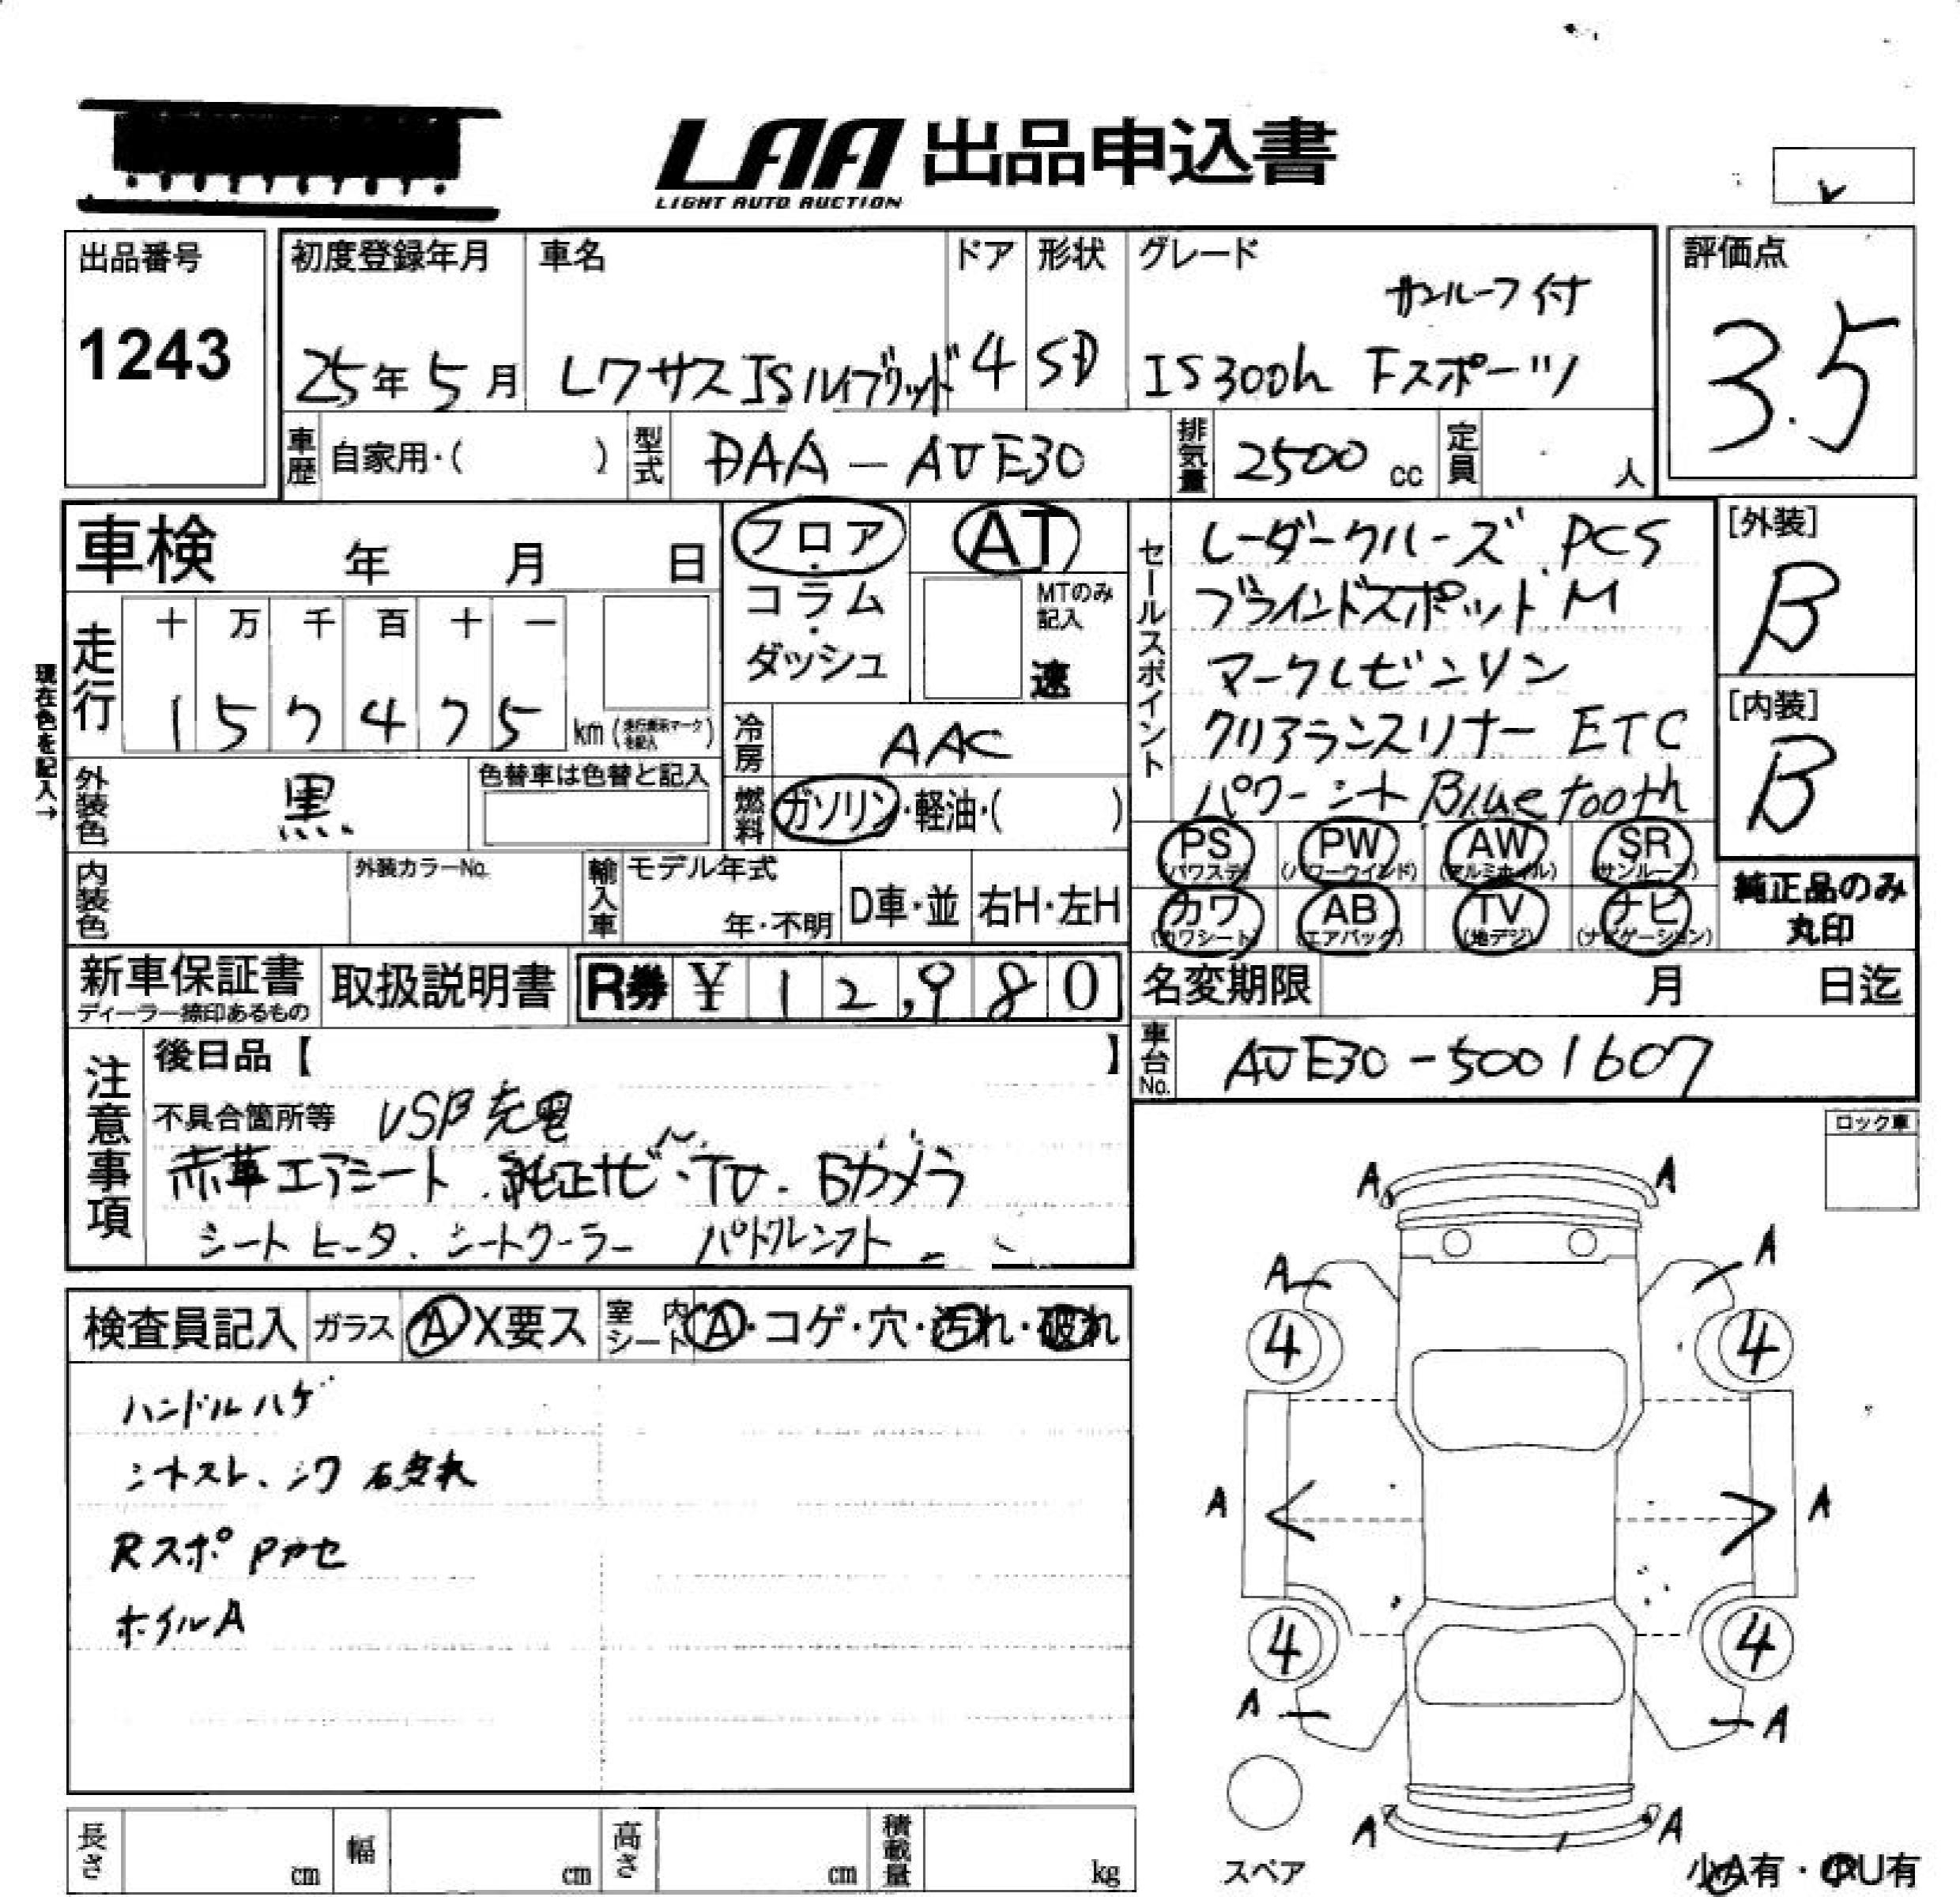 LAA 出品申込書
LIGHT AUTO AUCTION
出品番号
1243
初度登録年月 車名 ドア 形状 グレード
サンルーフ付
25年5月 レクサスISハイブリッド 4 SD IS300h Fスポーツ
評価点
3.5
車歴 自家用・( ) 型式 DAA-AVE30 排気量 2500 cc 定員 人
車検 年 月 日
走行 十 万 千 百 十 一
1 5 7 4 7 5 km (走行疑義マークを記入)
現在色を記入→
外装色 黒 色替車は色替と記入
内装色 外装カラーNo. 輸入車 モデル年式 年・不明 D車・並 右H・左H
フロア・コラム・ダッシュ
AT
MTのみ記入
速
冷房 AAC
燃料 ガソリン・軽油・( )
セールスポイント
レーダークルーズ PCS
ブラインドスポットM
マークレビンソン
クリアランスソナー ETC
パワーシート Bluetooth
[外装]
B
[内装]
B
PS PW AW SR
(パワステ) (パワーウインド) (アルミホイル) (サンルーフ)
カワ AB TV ナビ
(カワシート) (エアバック) (地デジ) (ナビゲーション)
純正品のみ
丸印
新車保証書 取扱説明書 R券 ¥ 1 2,9 8 0
ディーラー捺印あるもの
名変期限 月 日迄
車台No. AVE30-5001607
注意事項
後日品【 】
不具合箇所等 USB充電
赤革エアシート 純正ナビ・TV・Bカメラ
シートヒータ、シートクーラー パドルシフト
ロック車
検査員記入 ガラス A X要ス 室内シート A・コゲ・穴・汚れ・破れ
ハンドルハゲ
シートスレ、シワ
Rスポ Pカセ
ホイルA
A A
A A
4 4
A A
4 4
A A
A A
スペア
小A有・小U有
長さ cm 幅 cm 高さ cm 積載量 kg